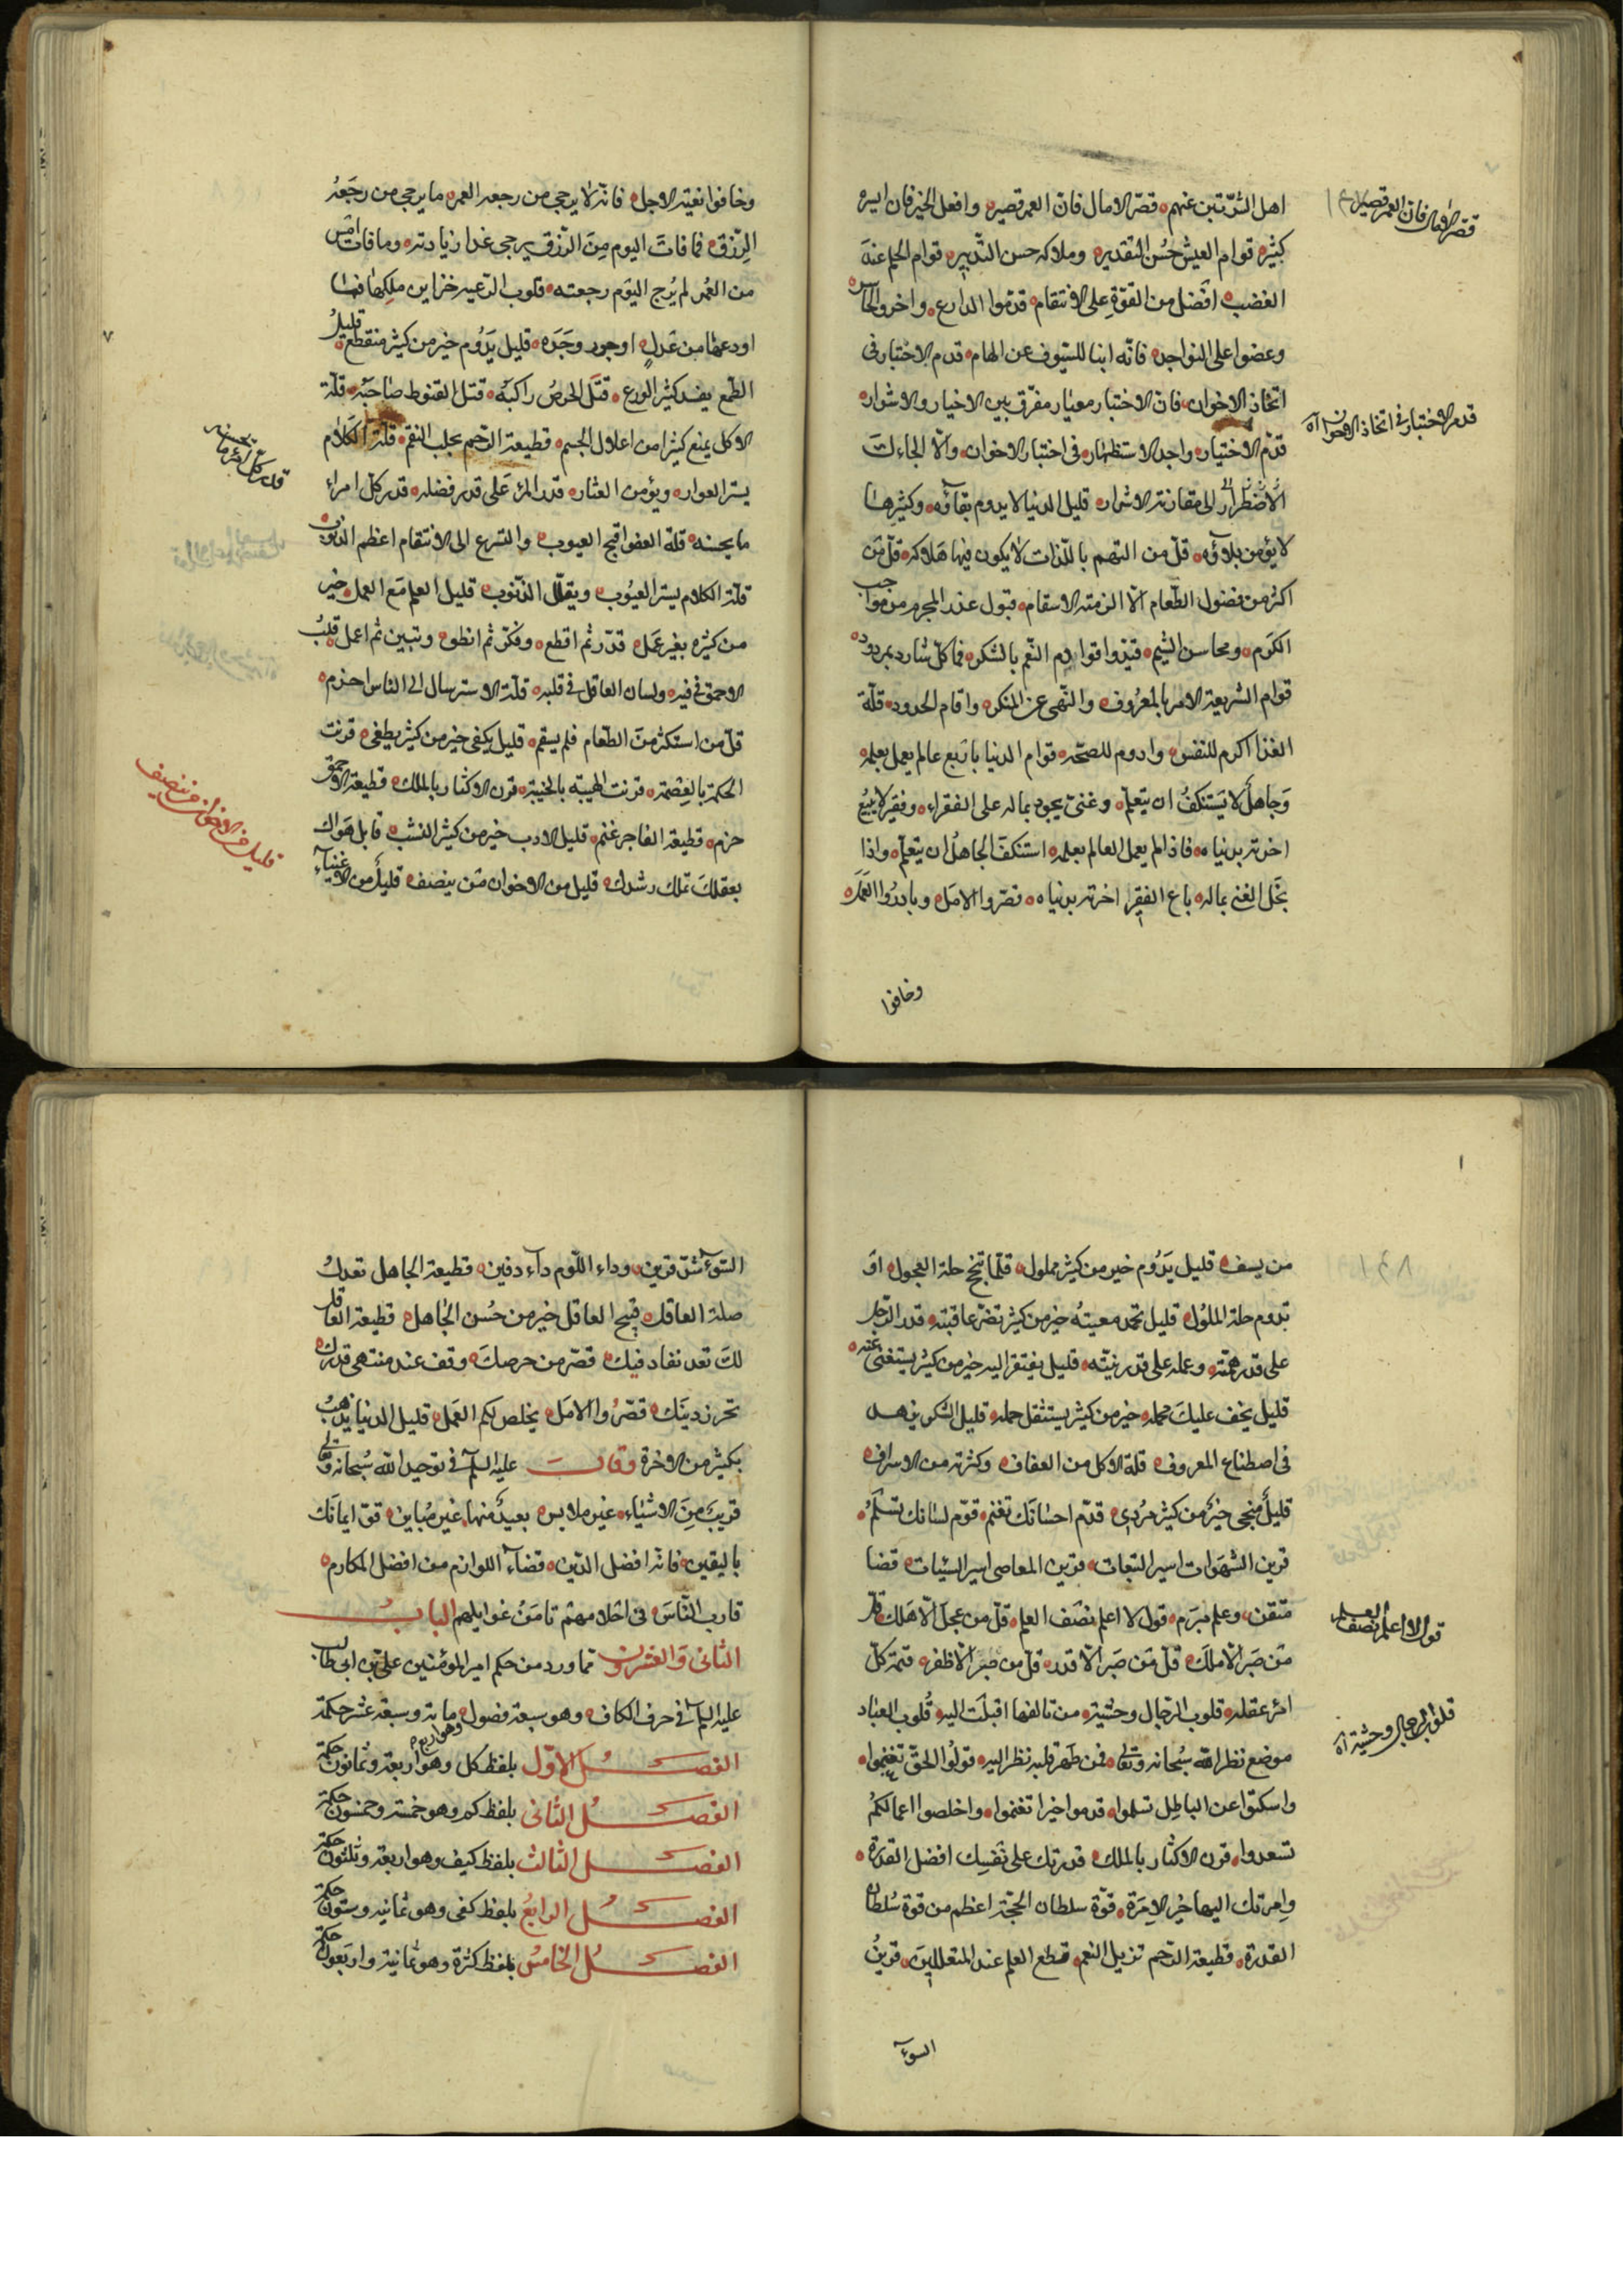 اهل الشرّ تبن عنهم، قصّر الامال فان العمر قصيره وافعل الخير فان ايسره
كثيره قوام العيش حُسن التقديره وملاكه حسن التّدبيره قوام الحلم عند
الغضبه افضل من القوّة على الانتقام، قدّموا الدارع، واخروا الحاسر
وعضوا على النواجده فانّه انبا للسيوف عن الهام، قدم الاختبار فى
اتخاذ الاخوان، فان الاختبار معيار مفرّق بين الاخيار والاشراره
قدّم الاختياره واجد الاستظهاره فى اختبار الاخوان، والّا الجاءك
الاضطرار الى مقارنة الاشراره قليل الدنيا لا يدوم بقاؤه، وكثيرها
لا يؤمن بلاؤه، قلّ من التهم باللّذات الا يكون فيها هلاكه، قلّ من
اكثر من فضول الطّعام الّا الزمته الاسقام، قبول عذر المجرم من مواجب
الكرم، ومحاسن الشيم، قيّدوا قوادم النّعم بالشكره فما كلّ شارد بمردود
قوام الشريعة الامر بالمعروف، والنّهى عن المنكره واقام الحدود، قلّة
الغذا اكرم للنفس، وادوم للصحّه قوام الدنيا باربع عالم يعمل بعلمه
وجاهل لا يستنكف ان يتعلّم، وغنى يجود بماله على الفقراء، وفقير لا يبيع
اخرته بدنياه، فاذا لم يعمل العالم بعلمه استنكف الجاهل ان يتعلّم، واذا
بخل الغنى بماله باع الفقير اخرته بدنياه، قصّروا الامل، وبادروا العمل
وخافوا
قصر الامال فان العمر قصير
قدم الاختبار فى اتخاذ الاخوان اه
وخافوا بغتة الاجل، فانّه لا يرجى من رجعه العمر، ما يرجى من رجعه
الرّزق، فما فات اليوم من الرّزق يرجى غدا زيادته، وما فات امس
من العمر لم يرج اليوم رجعته، قلوب الرّعيه خزاين ملكها فما
اودعها من عدل، او جور، وجده، قليل يدوم خير من كثير منقطع، قليل
الطّمع يفسد كثير الورع، قتل الحرص راكبه، قتل القنوط صاحبه، قلّة
الاكل يمنع كثيرا من اعلال الجسم، قطيعة الرّحم يجلب النقم، قلّة الكلام
يستر العواره ويؤمن العثاره قدر المرء على قدر فضله، قدر كلّ امراء
ما يحسنه، قلة العفو اقبح العيوب، والتسرع الى الانتقام اعظم الذنوب
قلّة الكلام يستر العيوب، ويقلّل الذّنوب، قليل العلم مع العمل، خير
من كثيره بغير عمل، قدّر ثم اقطع، وفكّر ثم انطق، وتبين ثم اعمل، قلب
الاحمق فى فيه، ولسان العاقل فى قلبه، قلّة الاسترسال الى الناس احزم
قلّ من استكثر من الطّعام فلم يسقم، قليل يكفى خير من كثير يطغى، قرنت
الحكمة بالعصمة، قرنت الهيبه بالخيبة، قرن الاكثار بالملل، قطيعة الاحمق
حزم، قطيعة الفاجر غنم، قليل الادب خير من كثير النسب، قاتل هواك
بعقلك تملك رشدك، قليل من الاخوان من ينصف، قليل من الاغنياء
قدر كل امرء ما يحسنه
قليل من الاخوان من ينصف
من يسعف، قليل يدوم خير من كثير مملول، قلّما تنجح حلة العجول، او
تدوم حلة الملول، قليل تحمد معيته خير من كثير تضرّ عاقبته، قدر الرّجل
على قدر همّته، وعمله على قدر نيّته، قليل يفتقر اليه خير من كثير يستغنى عنه
قليل يخف عليك حمله، خير من كثير يستثقل حمله، قليل الشكر يزهد
فى اصطناع المعروف، قلة الاكل من العفاف، وكثرته من الاسراف
قليل منجى خير من كثير مردى، قدّم احسانك تغنم، قوّم لسانك تسلم
قرين الشهوات اسير التبعات، قرين المعاصى اسير السيئات، قضا
متقن، وعلم مبرم، قول لا اعلم نصف العلم، قلّ من عجل الّا هلك، قلّ
من صبر الّا ملك، قلّ من صبر الّا قدر، قلّ من صبر الّا ظفر، قيمة كلّ
امرء عقله، قلوب الرّجال وحشية، من تالفها اقبلت اليه، قلوب العباد
موضع نظر الله سبحانه وتعالى، فمن طهر قلبه نظر اليه، قولوا الحقّ تغنموا
واسكتوا عن الباطل تسلموا، قدموا خيرا تغنموا، واخلصوا اعمالكم
تسعدوا، قرن الاكثار بالملل، قدرتك على نفسك افضل القدرة
وامرتك اليها خير الامرة، قوّة سلطان الحجّة اعظم من قوة سلطان
القدرة، قطيعة الرّحم تزيل النعم، قطع العلم عند المتعللين، قرين
السوء
قول لا اعلم نصف العلم
قلوب الرجال وحشية اه
السّوء شرّ قرين، وداء اللّوم داء دفين، قطيعة الجاهل تعدل
صلة العاقل، قبيح العاقل خير من حسن الجاهل، قطيعة العاقل
لك بعد نفاد فيك، قصّر من حرصك، وقف عند منتهى قدرك
تحرز دينك، قصّروا الامل، يخلص لكم العمل، قليل الدنيا يذهب
بكثير من الاخرة وقال عليه السلم فى توحيد الله سبحانه وتعالى
قريب من الاشياء، غير ملابس، بعيد منها، غير مباين، قوّ ايمانك
باليقين، فانّه افضل الدّين، قضاء اللوازم من افضل المكارم
قارب النّاس، فى اخلاقهم تامن غوايلهم الباب
الثانى والعشرون مما ورد من حكم امير المؤمنين على بن ابى طالب
عليه السلم فى حرف الكاف، وهو سبعة فصول، وهو اربع مائة وسبعة عشر حكمة
الفصل الاوّل بلفظ كل وهو اربعة وثمانون حكمة
الفصل الثانى بلفظ كم وهو خمسة وخمسون حكمة
الفصل الثالث بلفظ كيف وهو اربعة وثلثون حكمة
الفصل الرابع بلفظ كفى وهو ثمانيه وستون حكمة
الفصل الخامس بلفظ كثرة وهو ثمانية واربعون حكمة